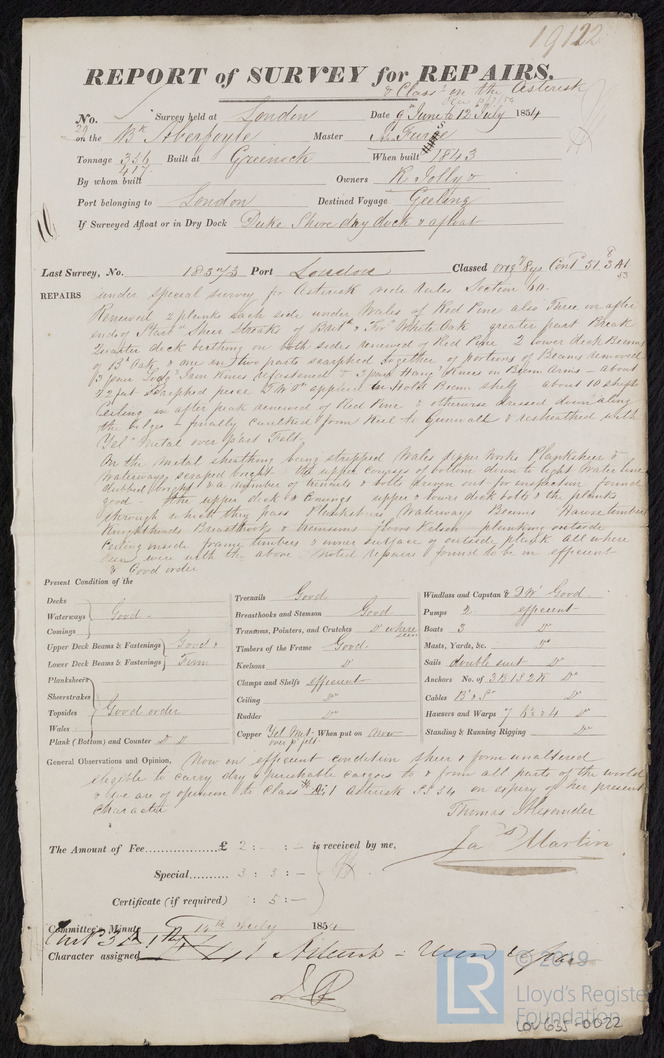 19122
REPORT of SURVEY for REPAIRS.
& Class on the Asterisk
No. Survey held at London Date 9th June to 12 July 1854
29 on the Bk Aberfoyle Master
Tonnage 356 Built at Greenock When built 1843
417
By whom built Owners R. Jolly &
Port belonging to London Destined Voyage Geelong
If Surveyed Afloat or in Dry Dock Duke Shore dry dock & afloat
Last Survey, No. 18573 Port London Classed 8 yrs Contd 51. 3 A1
53
REPAIRS under special survey for Asterisk vide Rules Section 50.
Renewed 2 planks each side under Wales of Red Pine also Three on after
ends of Starbd Sheer Strake of White Oak greater part Break
Quarter deck birthing on both sides renewed of Red Pine 2 lower deck Beams
of Bk Oak & one in two parts scarphed together of portions of Beams removed
3 pair Lodg Iron Knees refastened & 3 pair Hang Knees on Beam Arms – about
42 feet scarphed piece applied to Hold Beam shelf – about 10 shifts
Ceiling in after peak renewed of Red Pine & otherwise dressed down along
the bilges – finally caulked from Keel to Gunwale & resheathed with
Yel Metal over part Felt.
On the metal sheathing being stripped Wales Upper Works Planksheer &
Waterways scraped bright the upper courses of bottom down to light Water line
dubbed bright & a number of treenails & bolts driven out for inspection found
good – the upper deck & Comings upper & lower deck bolts & the planks
through which they pass Planksheer Waterways Beams Hawse timbers
Knightheads Breasthooks & Transoms floors Kelson planking outside
Ceiling inside frame timbers & inner surface of outside plank all where
seen were with the above noted repairs found to be in efficient
& Good order
Present Condition of the
Decks
Waterways Good.
Comings
Upper Deck Beams & Fastenings Good &
Lower Deck Beams & Fastenings Firm
Planksheers
Sheerstrakes
Topsides Good order
Wales
Plank (Bottom) and Counter Do Do
Treenails Good
Breasthooks and Stemson Good
Transoms, Pointers, and Crutches Do where seen
Timbers of the Frame Good.
Keelsons Do
Clamps and Shelfs efficient
Ceiling Do
Rudder Do
Copper Yel Met over pt felt When put on Now
Windlass and Capstan & Good.
Pumps 2 efficient
Boats 3 Do
Masts, Yards, &c. Do
Sails double suit Do
Anchors No. of 3B 1S 2K Do
Cables Do
Hawsers and Warps 7 Do
Standing & Running Rigging Do
General Observations and Opinion, Now in efficient condition sheer & form unaltered
eligible to carry dry & perishable cargoes to & from all parts of the world
& we are of opinion to Class *A 1 Asterisk on expiry of her present
character
Thomas Alexander
Jas Martin
The Amount of Fee £ 2 : – : – is received by me,
Special 3 : 3 : –
Certificate (if required) : 5 : –
Committee's Minute 14th July 1854
Character assigned
LR
© 2019
Lloyd's Register
Foundation
LOV635-0022